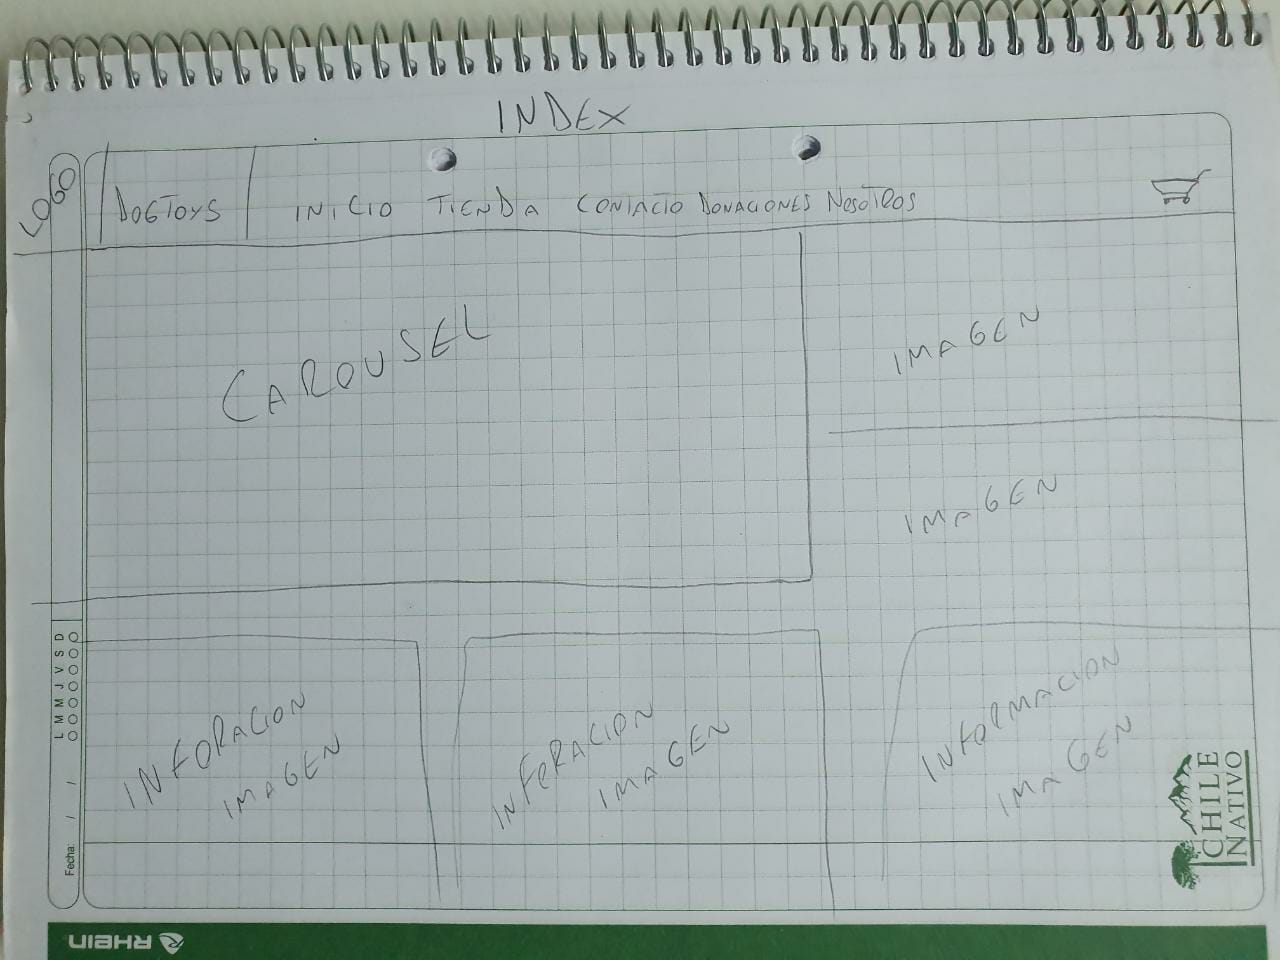 INDEX
LOGO DOGTOYS INICIO TIENDA CONTACTO DONACIONES NOSOTROS
CAROUSEL
IMAGEN
IMAGEN
INFORACION
IMAGEN
INFORACION
IMAGEN
INFORMACION
IMAGEN
Fecha: / / L M M J V S D
CHILE
NATIVO
RHEIN